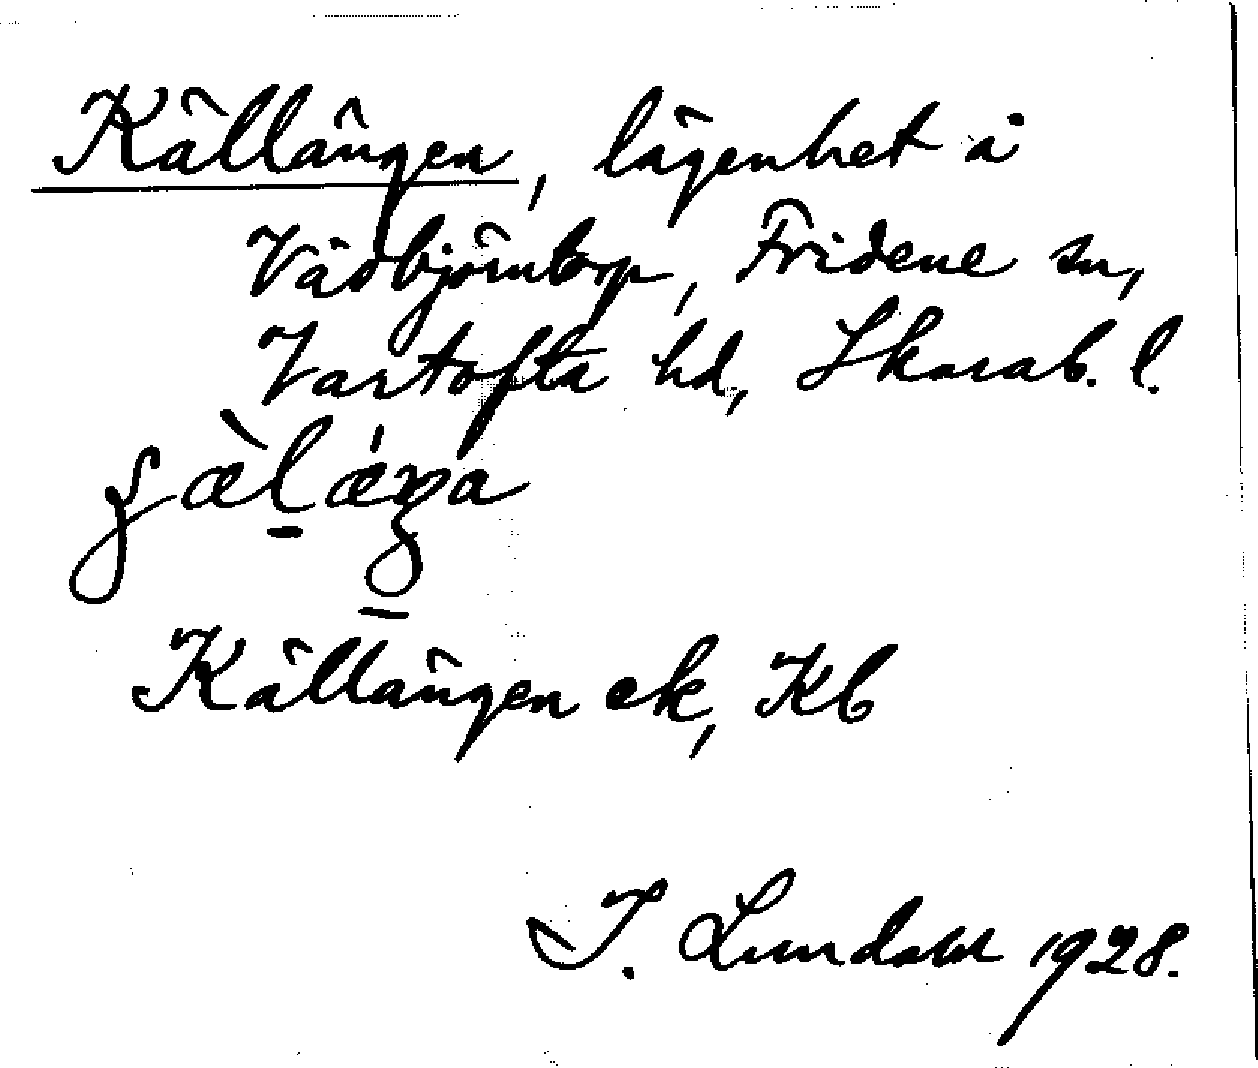 Källängen, lägenhet å
Vädbjörntorp, Fridene sn,
Vartofta hd, Skarab. l.
Källängen ek, Kb
I. Lundahl 1928.